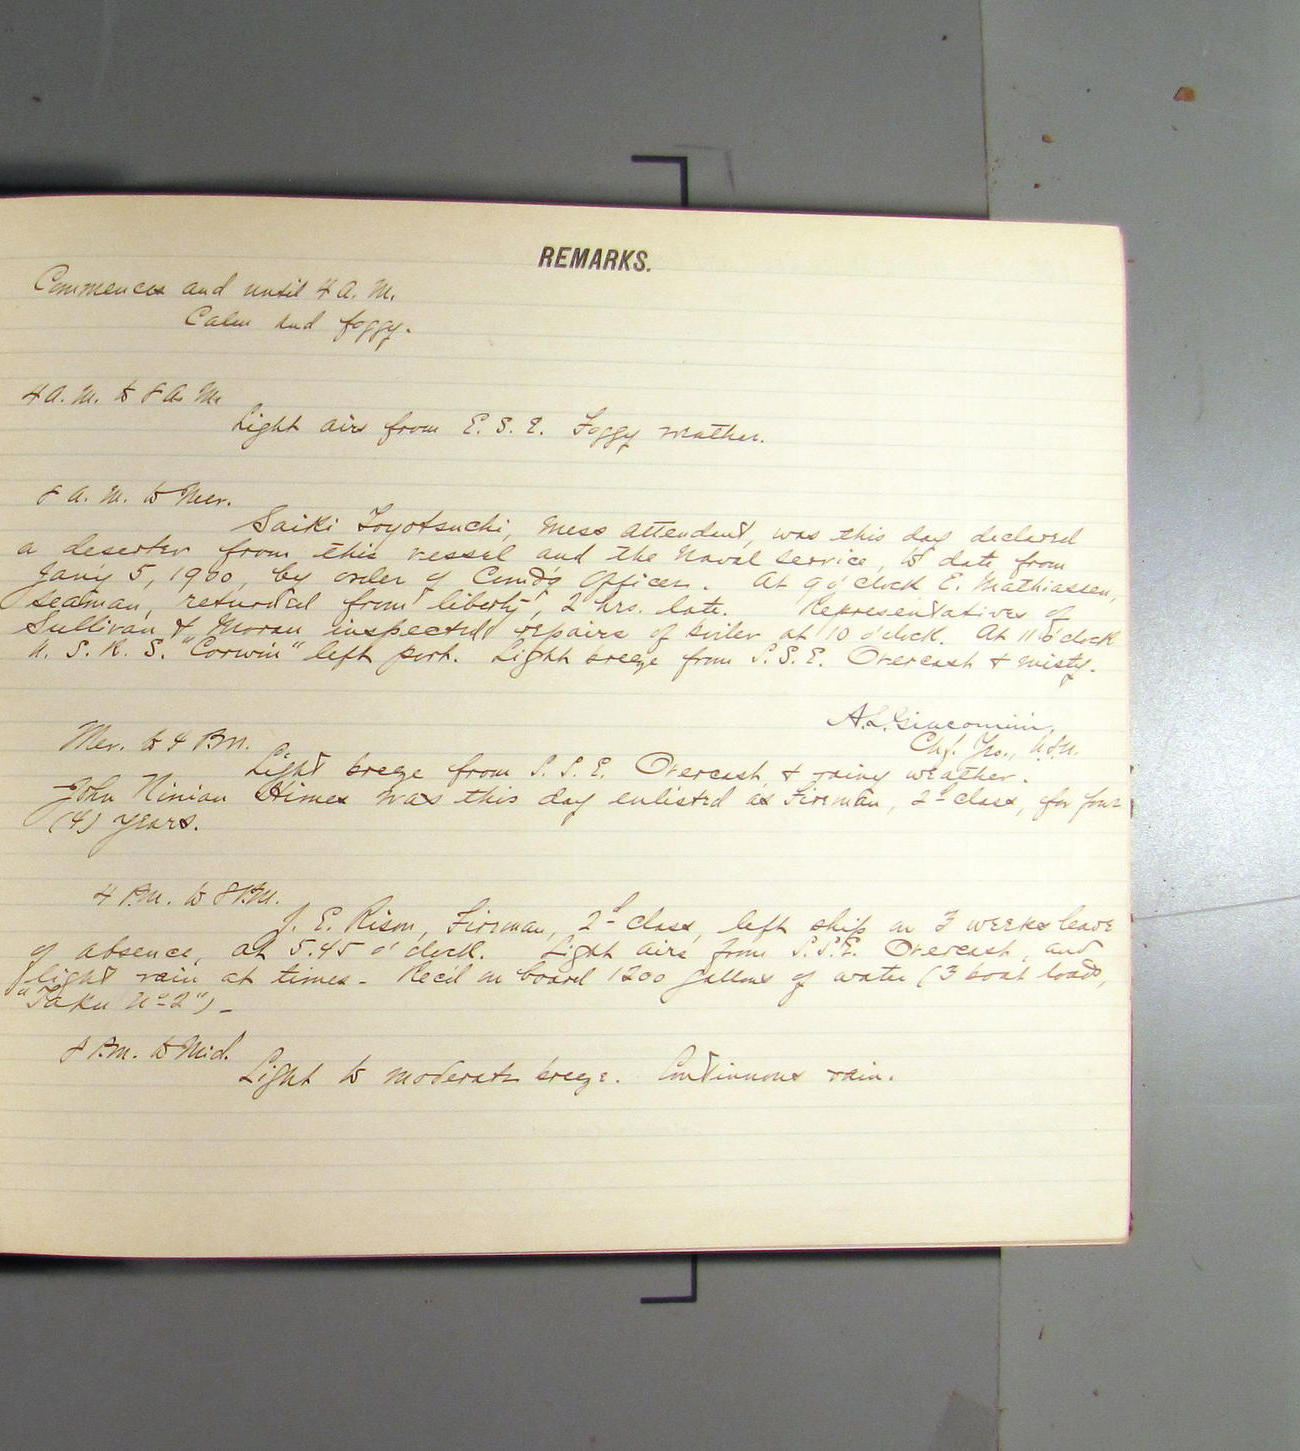 REMARKS.
Commences and until 4 A. M.
Calm and foggy.
4 A. M. to 8 A. M.
Light airs from E. S. E. Foggy weather.
8 A. M. to Mer.
Saiki Toyotsuchi, Mess Attendant, was this day declared
a deserter from this vessel and the Naval Service, to date from
Jany 5, 1900, by order of Comd'g Officer. At 9 o'clock E. Mathiassen,
seaman, returned from liberty, 2 hrs. late. Representatives of
Sullivan & Moran inspected repairs of boiler at 10 o'clock. At 11 o'clock
U. S. R. S. "Corwin" left port. Light breeze from S. S. E. Overcast & misty.
A. L. Giacomini,
Chf. Yeo., U.S.N.
Mer. to 4 P.M.
Light breeze from S. S. E. Overcast & rainy weather.
John Ninian Himes was this day enlisted as Fireman, 2d class, for four
(4) years.
4 P.M. to 8 P.M.
J. E. Rison, Fireman, 2d class, left ship on 3 weeks leave
of absence, at 5.45 o'clock. Light airs from S.S.E. Overcast, and
light rain at times - Rec'd on board 1200 gallons of water (3 boat loads,
"Taku No 2") -
8 P.M. to Mid.
Light to moderate breeze. Continuous rain.